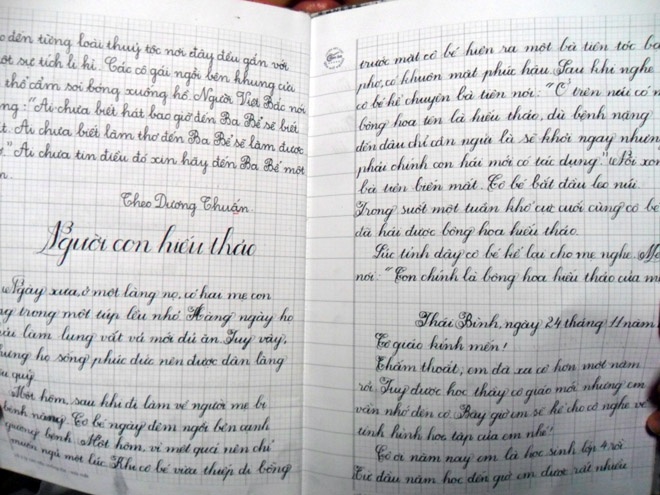 đến từng loài thuỷ tộc nơi đây đều gắn với
t sự tích li kì. Các cô gái ngồi bên khung cửa
thổ cẩm soi bóng xuống hồ. Người Việt Bắc nói
ng: "Ai chưa biết hát bao giờ đến Ba Bể sẽ biết
t. Ai chưa biết làm thơ đến Ba Bể sẽ làm được
". Ai chưa tin điều đó xin hãy đến Ba Bể một
n.
Theo Dương Thuấn
Người con hiếu thảo
Ngày xưa, ở một làng nọ, có hai mẹ con
ng trong một túp lều nhỏ. Hàng ngày họ
ải làm lung vất vả mới đủ ăn. Tuy vậy,
hưng họ sống phúc đức nên được dân làng
u quý.
Một hôm, sau khi đi làm về người mẹ bị
bệnh nặng. Cô bé ngày đêm ngồi bên cạnh
giường bệnh. Một hôm, vì mệt quá nên chỉ
muốn ngủ một lúc. Khi cô bé vừa thiếp đi bỗng
trước mặt cô bé hiện ra một bà tiên tóc bạ
phơ, có khuôn mặt phúc hậu. Sau khi nghe
cô bé kể chuyện bà tiên nói: "Ở trên núi có m
bông hoa tên là hiếu thảo, dù bệnh nặng
đến đâu chỉ cần ngửi là sẽ khỏi ngay nhưng
phải chính con hái mới có tác dụng". Nói xon
bà tiên biến mất. Cô bé bắt đầu leo núi.
Trong suốt một tuần khổ cực cuối cùng cô bé
đã hái được bông hoa hiếu thảo.
Lúc tỉnh dậy cô bé kể lại cho mẹ nghe. Mẹ
nói: "Con chính là bông hoa hiếu thảo của mẹ
Thái Bình, ngày 24 tháng 11 năm
Cô giáo kính mến!
Thấm thoắt, em đã xa cô hơn một năm
rồi. Tuy được học thầy cô giáo mới nhưng em
vẫn nhớ đến cô. Bây giờ em sẽ kể cho cô nghe về
tình hình học tập của em nhé!
Cô ơi năm nay em là học sinh lớp 4 rồi.
Từ đầu năm học đến giờ em được rất nhiều